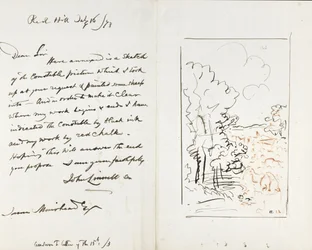 Red Hill July 16/73
Dear Sir
Here annexed is a Sketch
of the Constable picture which I took
up at your request & painted some sheep
into. And in order to make it clear
where my work begins & ends I have
indicated the Constable by black ink
and my work by red chalk.
Hoping this will answer the end
you propose I am yours faithfully
John Linnell
James Muirhead Esq